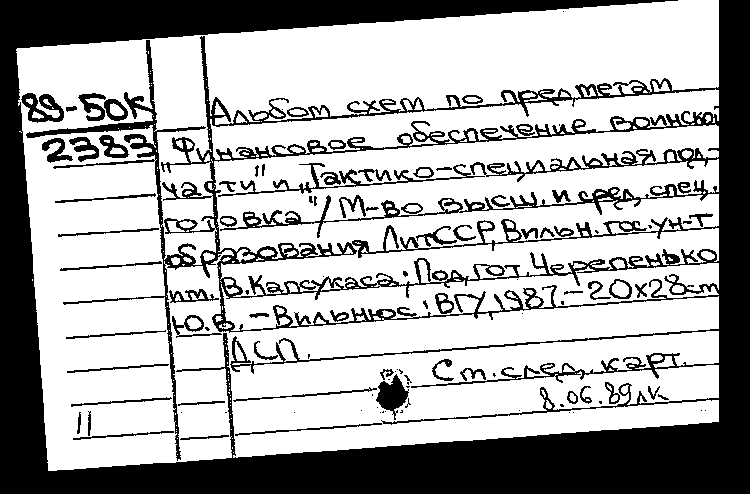 89-50К
2383
Альбом схем по предметам
"Финансовое обеспечение воинской
части" и "Тактико-специальная под-
готовка" / М-во высш. и сред. спец.
образования ЛитССР, Вильн. гос. ун-т
им. В. Капсукаса; Подгот. Черепенько
Ю.В. - Вильнюс: ВГУ, 1987. - 20х28 см
ДСП.
См. след. карт.
8.06.89 лк
11